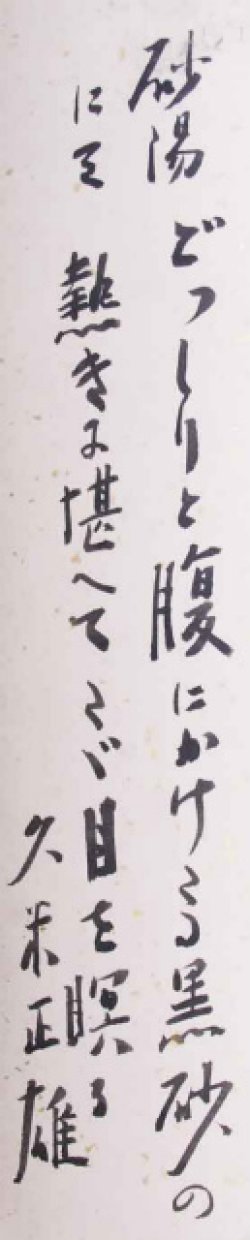 砂湯 どっしりと腹にかけたる黒砂の
にて 熱きに堪へてたゞ目を瞑る
久米正雄